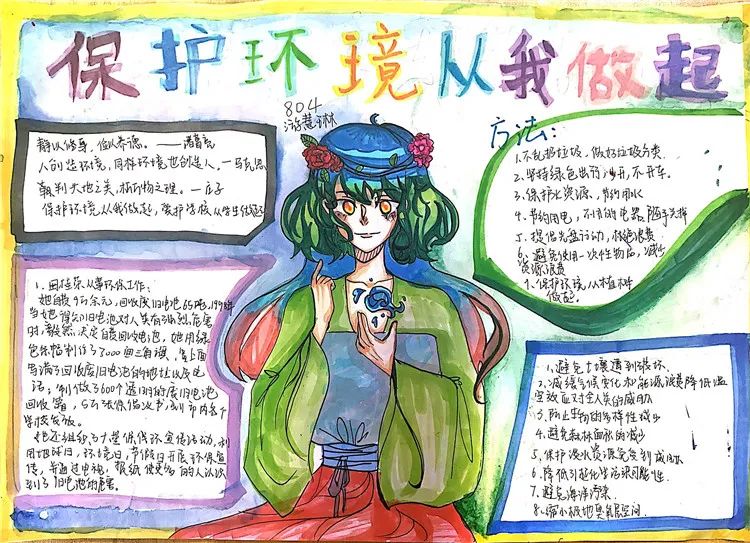 保护环境从我做起
804
游慧琳
静以修身,俭以养德。——诸葛亮
人创造环境,同样环境也创造人。—马克思
判天地之美,析万物之理。—庄子
保护环境从我做起,爱护学校从学生做起
方法:
1.不乱扔垃圾,做好垃圾分类
2.坚持绿色出行,不开车。
3.保护水资源,节约用水
4.节约用电,不用的电器随手关掉
5.提倡光盘行动,拒绝浪费
6.避免使用一次性物品,减少
资源浪费
7.保护环境,从植树
做起。
1.田桂荣从事环保工作:
她自费万余元,回收废旧电池65吨,
当她得知旧电池对人类有强烈危害
时,毅然决定自费回收电池,她用绿
色布制作了1000面三角旗,旗上面
写满了回收废旧电池的地址以及电
话;制做了600个透明的废旧电池
回收箱,
学校发放。
她还组织了大量保环境宣传活动,利
用地球日,环境日,节假日开展环保宣
传,并通过电视,报纸使更多的人认识
到了旧电池的危害。
1.避免土壤遭到破坏
2.减缓气候变化和能源浪费降低温
室效应对全人类的威胁
3.防止生物的多样性减少
4.避免森林面积的减少
5.保护淡水资源免受到威胁
6.降低引起化学污染可能性
7.避免海洋污染
8.缩小极地臭氧层空洞